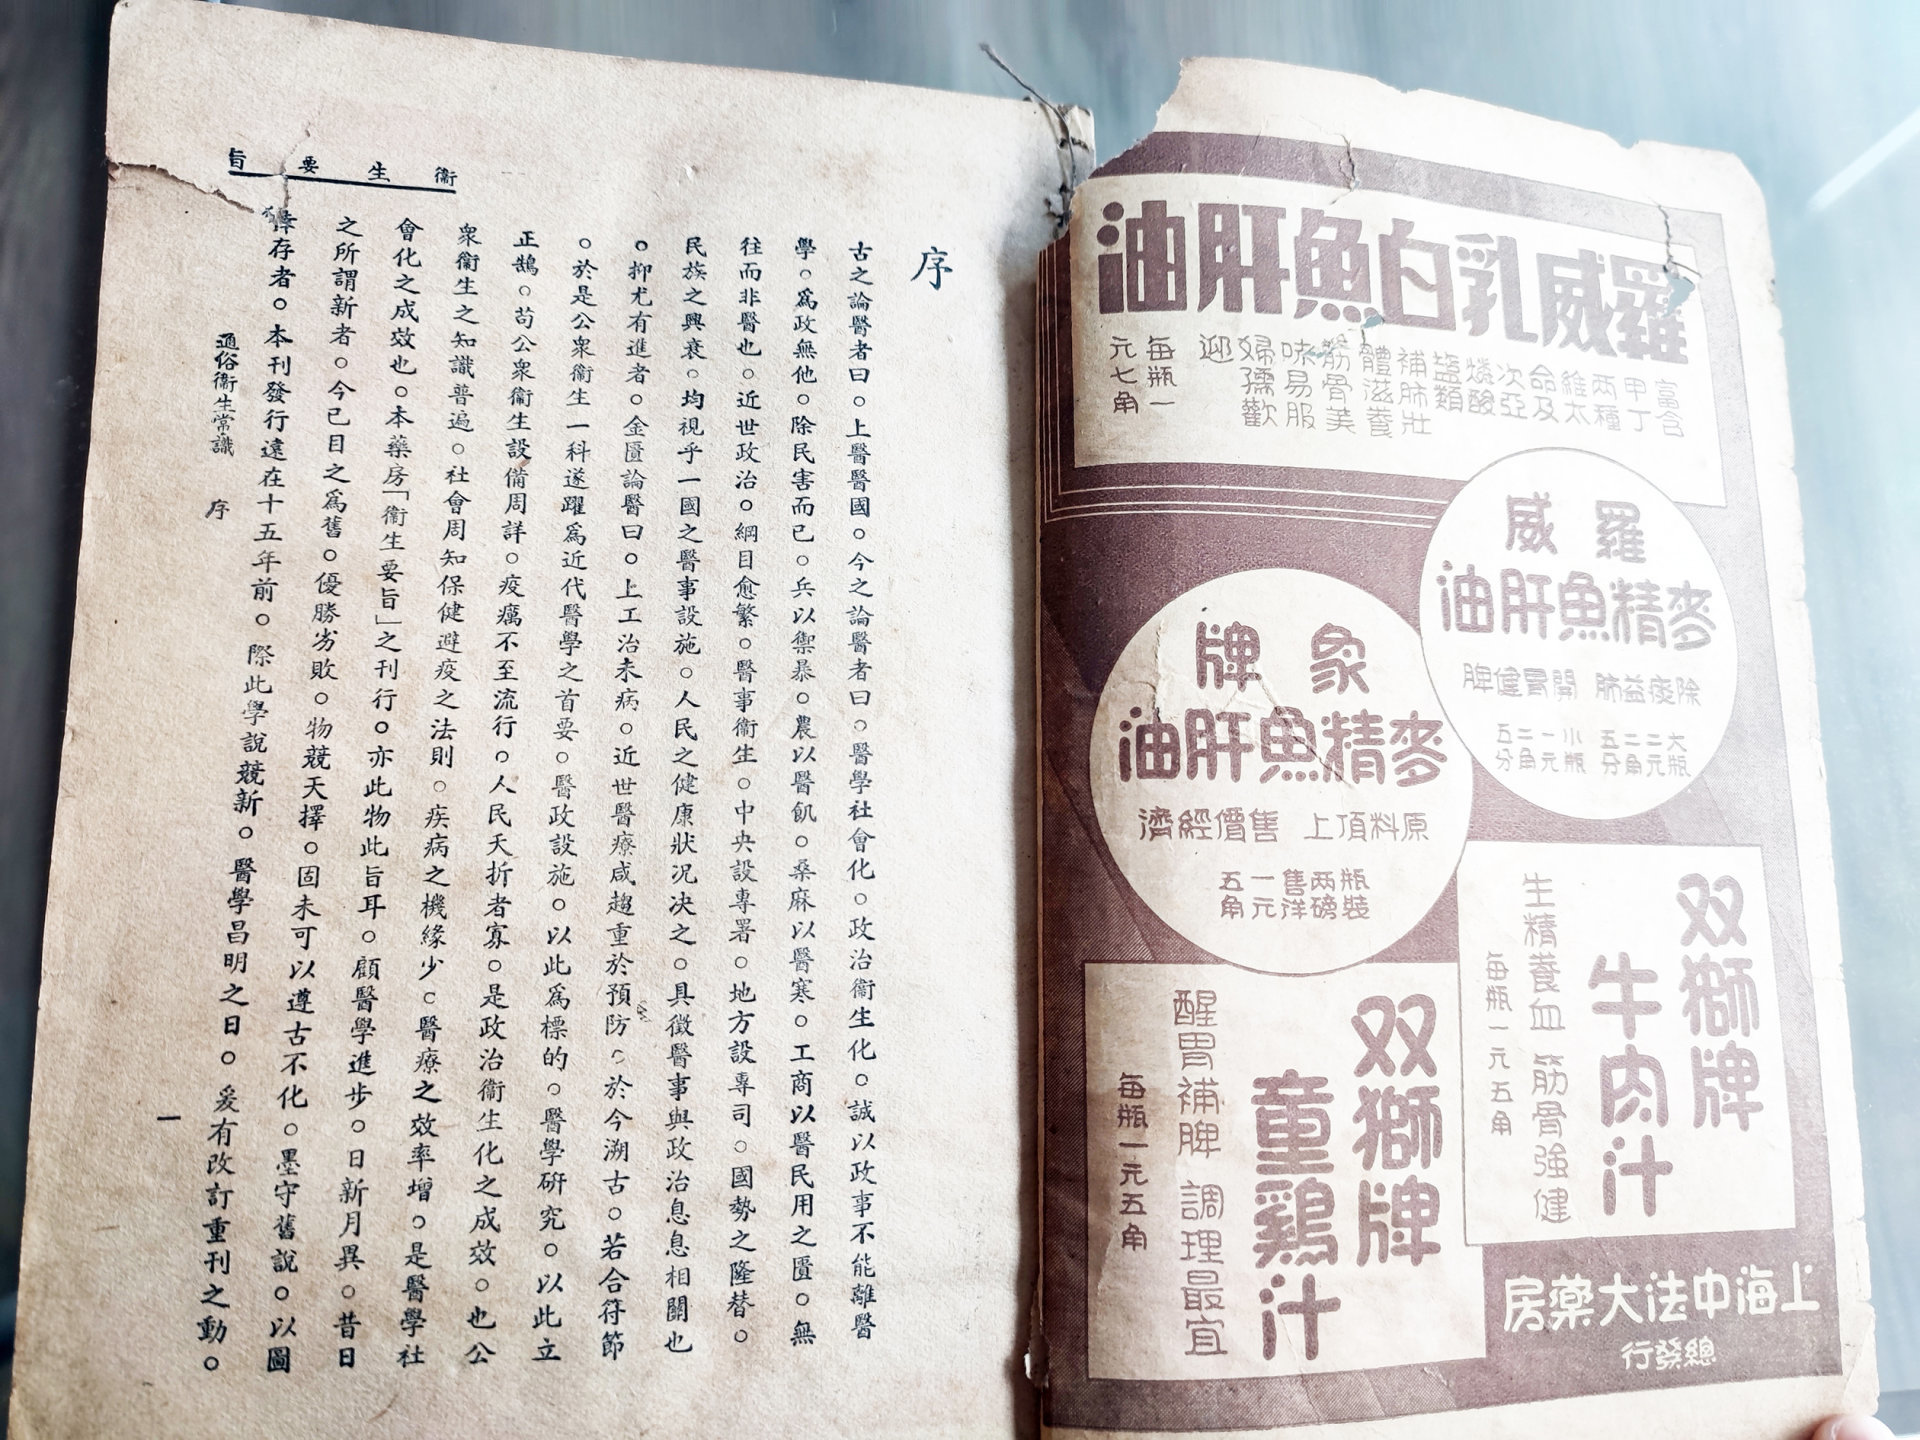 羅威乳白魚肝油
富含
甲丁
兩種
維太
命及
次亞
燐酸
鹽類
補肺壯
體滋養
筋骨美
味易服
婦孺歡
迎
每瓶一
元七角
羅威
麥精魚肝油
除痰益肺 開胃健脾
大瓶二元二角五分
小瓶一元二角五分
象牌
麥精魚肝油
原料頂上 售價經濟
瓶裝兩磅售洋一元五角
双獅牌
牛肉汁
生精養血 筋骨強健
每瓶一元五角
双獅牌
童鷄汁
醒胃補脾 調理最宜
每瓶一元五角
上海中法大藥房
總發行
衞生要旨
序
古之論醫者曰。上醫醫國。今之論醫者曰。醫學社會化。政治衞生化。誠以政事不能離醫
學。爲政無他。除民害而已。兵以禦暴。農以醫飢。桑麻以醫寒。工商以醫民用之匱。無
往而非醫也。近世政治。綱目愈繁。醫事衞生。中央設專署。地方設專司。國勢之隆替。
民族之興衰。均視乎一國之醫事設施。人民之健康狀况决之。具徵醫事與政治息息相關也
。抑尤有進者。金匱論醫曰。上工治未病。近世醫療咸趨重於預防。於今溯古。若合符節
。於是公衆衞生一科遂躍爲近代醫學之首要。醫政設施。以此爲標的。醫學硏究。以此立
正鵠。苟公衆衞生設備周詳。疫癘不至流行。人民夭折者寡。是政治衞生化之成效。也公
衆衞生之知識普遍。社會周知保健避疫之法則。疾病之機緣少。醫療之效率增。是醫學社
會化之成效也。本藥房「衞生要旨」之刊行。亦此物此旨耳。顧醫學進步。日新月異。昔日
之所謂新者。今已目之爲舊。優勝劣敗。物競天擇。固未可以遵古不化。墨守舊說。以圖
倖存者。本刊發行遠在十五年前。際此學說競新。醫學昌明之日。爰有改訂重刊之動。
通俗衞生常識 序
一